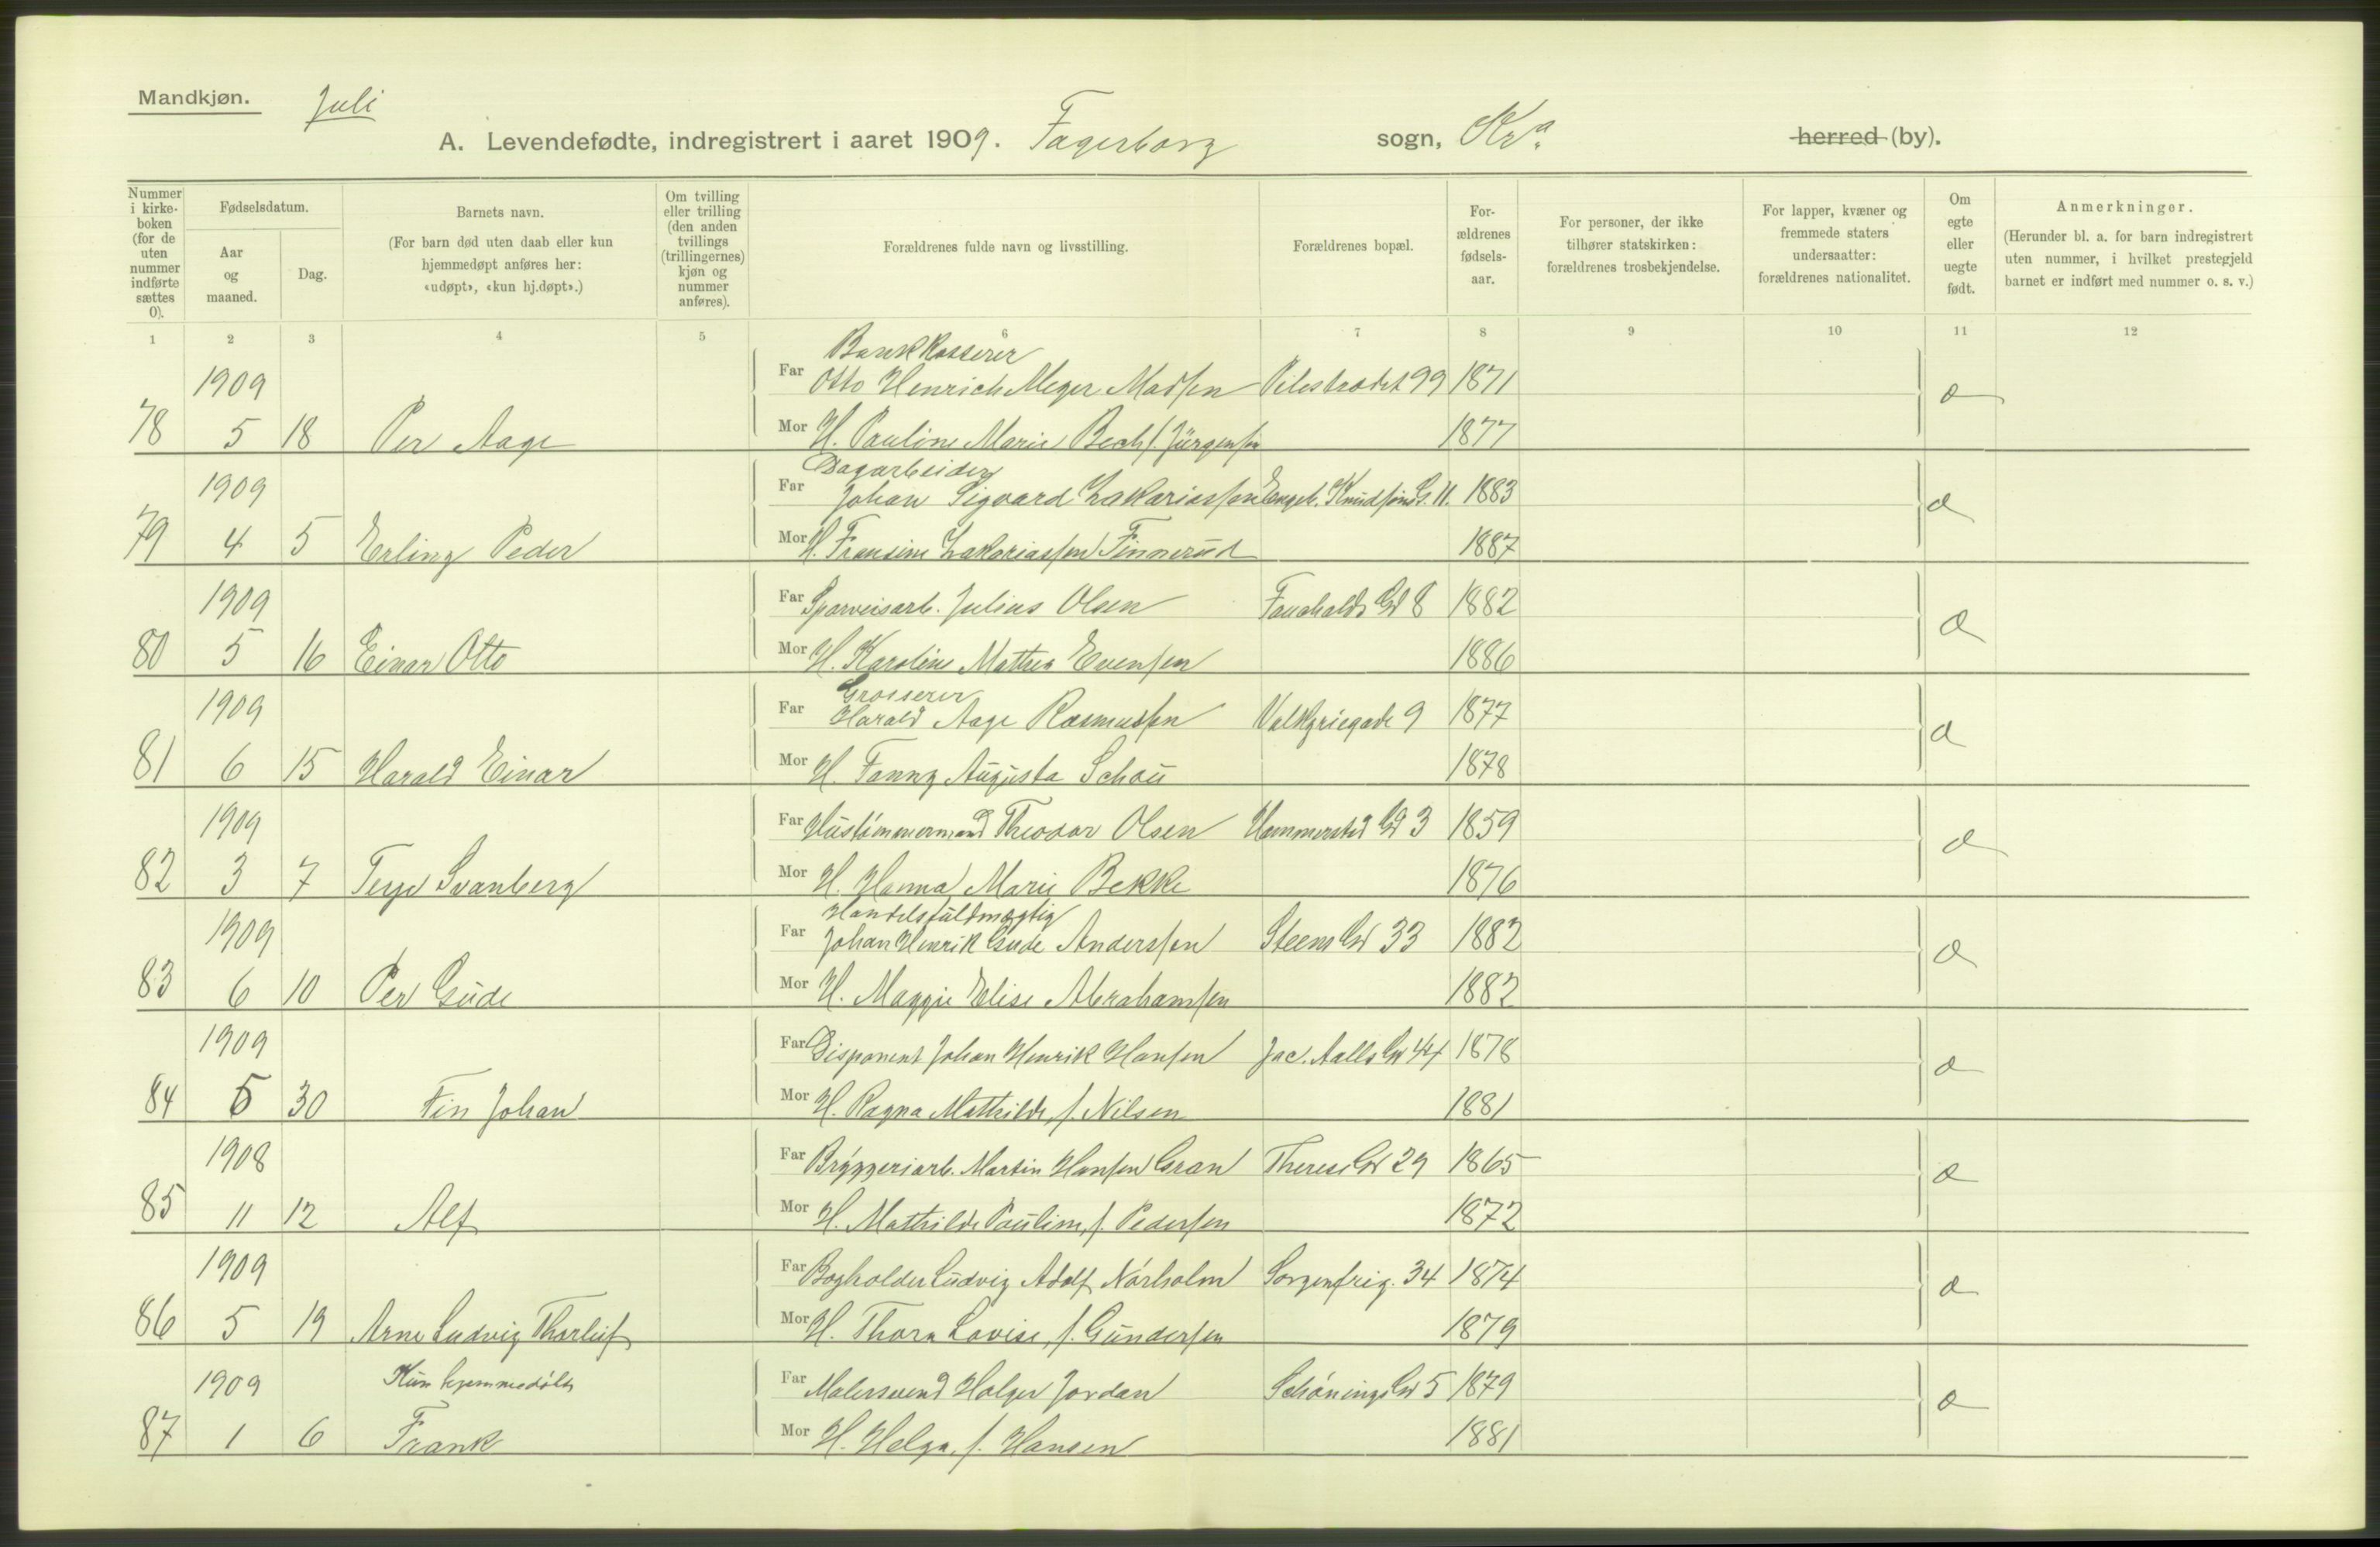 Mandkjøn. Juli
A. Levendefødte, indregistrert i aaret 1909. Fagerborg sogn, Kra. herred (by).
Nummer i kirke-boken (for de uten nummer indførte sættes 0).
Fødselsdatum.
Aar og maaned.
Dag.
Barnets navn.
(For barn død uten daab eller kun hjemmedøpt anføres her: «udøpt», «kun hj.døpt».)
Om tvilling eller trilling (den anden tvillings (trillingernes) kjøn og nummer anføres).
Forældrenes fulde navn og livsstilling.
Forældrenes bopæl.
For-ældrenes fødsels-aar.
For personer, der ikke tilhører statskirken: forældrenes trosbekjendelse.
For lapper, kvæner og fremmede staters undersaatter: forældrenes nationalitet.
Om egte eller uegte født.
Anmerkninger.
(Herunder bl. a. for barn indregistrert uten nummer, i hvilket prestegjeld barnet er indført med nummer o. s. v.)
1 2 3 4 5 6 7 8 9 10 11 12
Bankkasserer
1909 Far Otto Henrich Meyer Madsen Pilestrædet 99 1871
78 5 18 Per Aage Mor H. Pauline Marie Bech f. Jürgensen 1877
Dagarbeider
1909 Far Johan Sigvard Zakariassen Engeb. Knudsøns G. 11. 1883
79 4 5 Erling Peder Mor H. Fransine Zakariassen Finnerud 1887
1909 Far Sporveisarb. Julius Olsen Fauchalds Gd 8 1882
80 5 16 Einar Otto Mor H. Karoline Mathea Evensen 1886
Grosserer
1909 Far Harald Aage Rasmussen Valkyriegade 9 1877
81 6 15 Harald Einar Mor H. Fanny Augusta Schou 1878
1909 Far Hustømmermand Theodor Olsen Hammerstad Gd 3 1859
82 3 7 Terje Svanberg Mor H. Hanna Marie Bekke 1876
Handelsfuldmægtig
1909 Far Johan Henrik Gude Anderssen Steens Gd 33 1882
83 6 10 Per Gude Mor H. Maggie Elise Abrahamsen 1882
1909 Far Disponent Johan Henrik Hansen Jac. Aalls Gd 44 1878
84 5 30 Fin Johan Mor H. Ragna Mathilde, f. Nilsen 1881
1908 Far Bryggeriarb. Martin Hansen Gran Therese Gd 29 1865
85 11 12 Alf Mor H. Mathilde Pauline, f. Pedersen 1872
1909 Far Bogholder Ludvig Adolf Nørholm Sorgenfrig. 34 1874
86 5 19 Arne Ludvig Thorleif Mor H. Thora Lovise, f. Gundersen 1879
1909 Kun hjemmedøbt Far Malersvend Holger Jordan Schønings Gd 5 1879
87 1 6 Frank Mor H. Helga, f. Hansen 1881